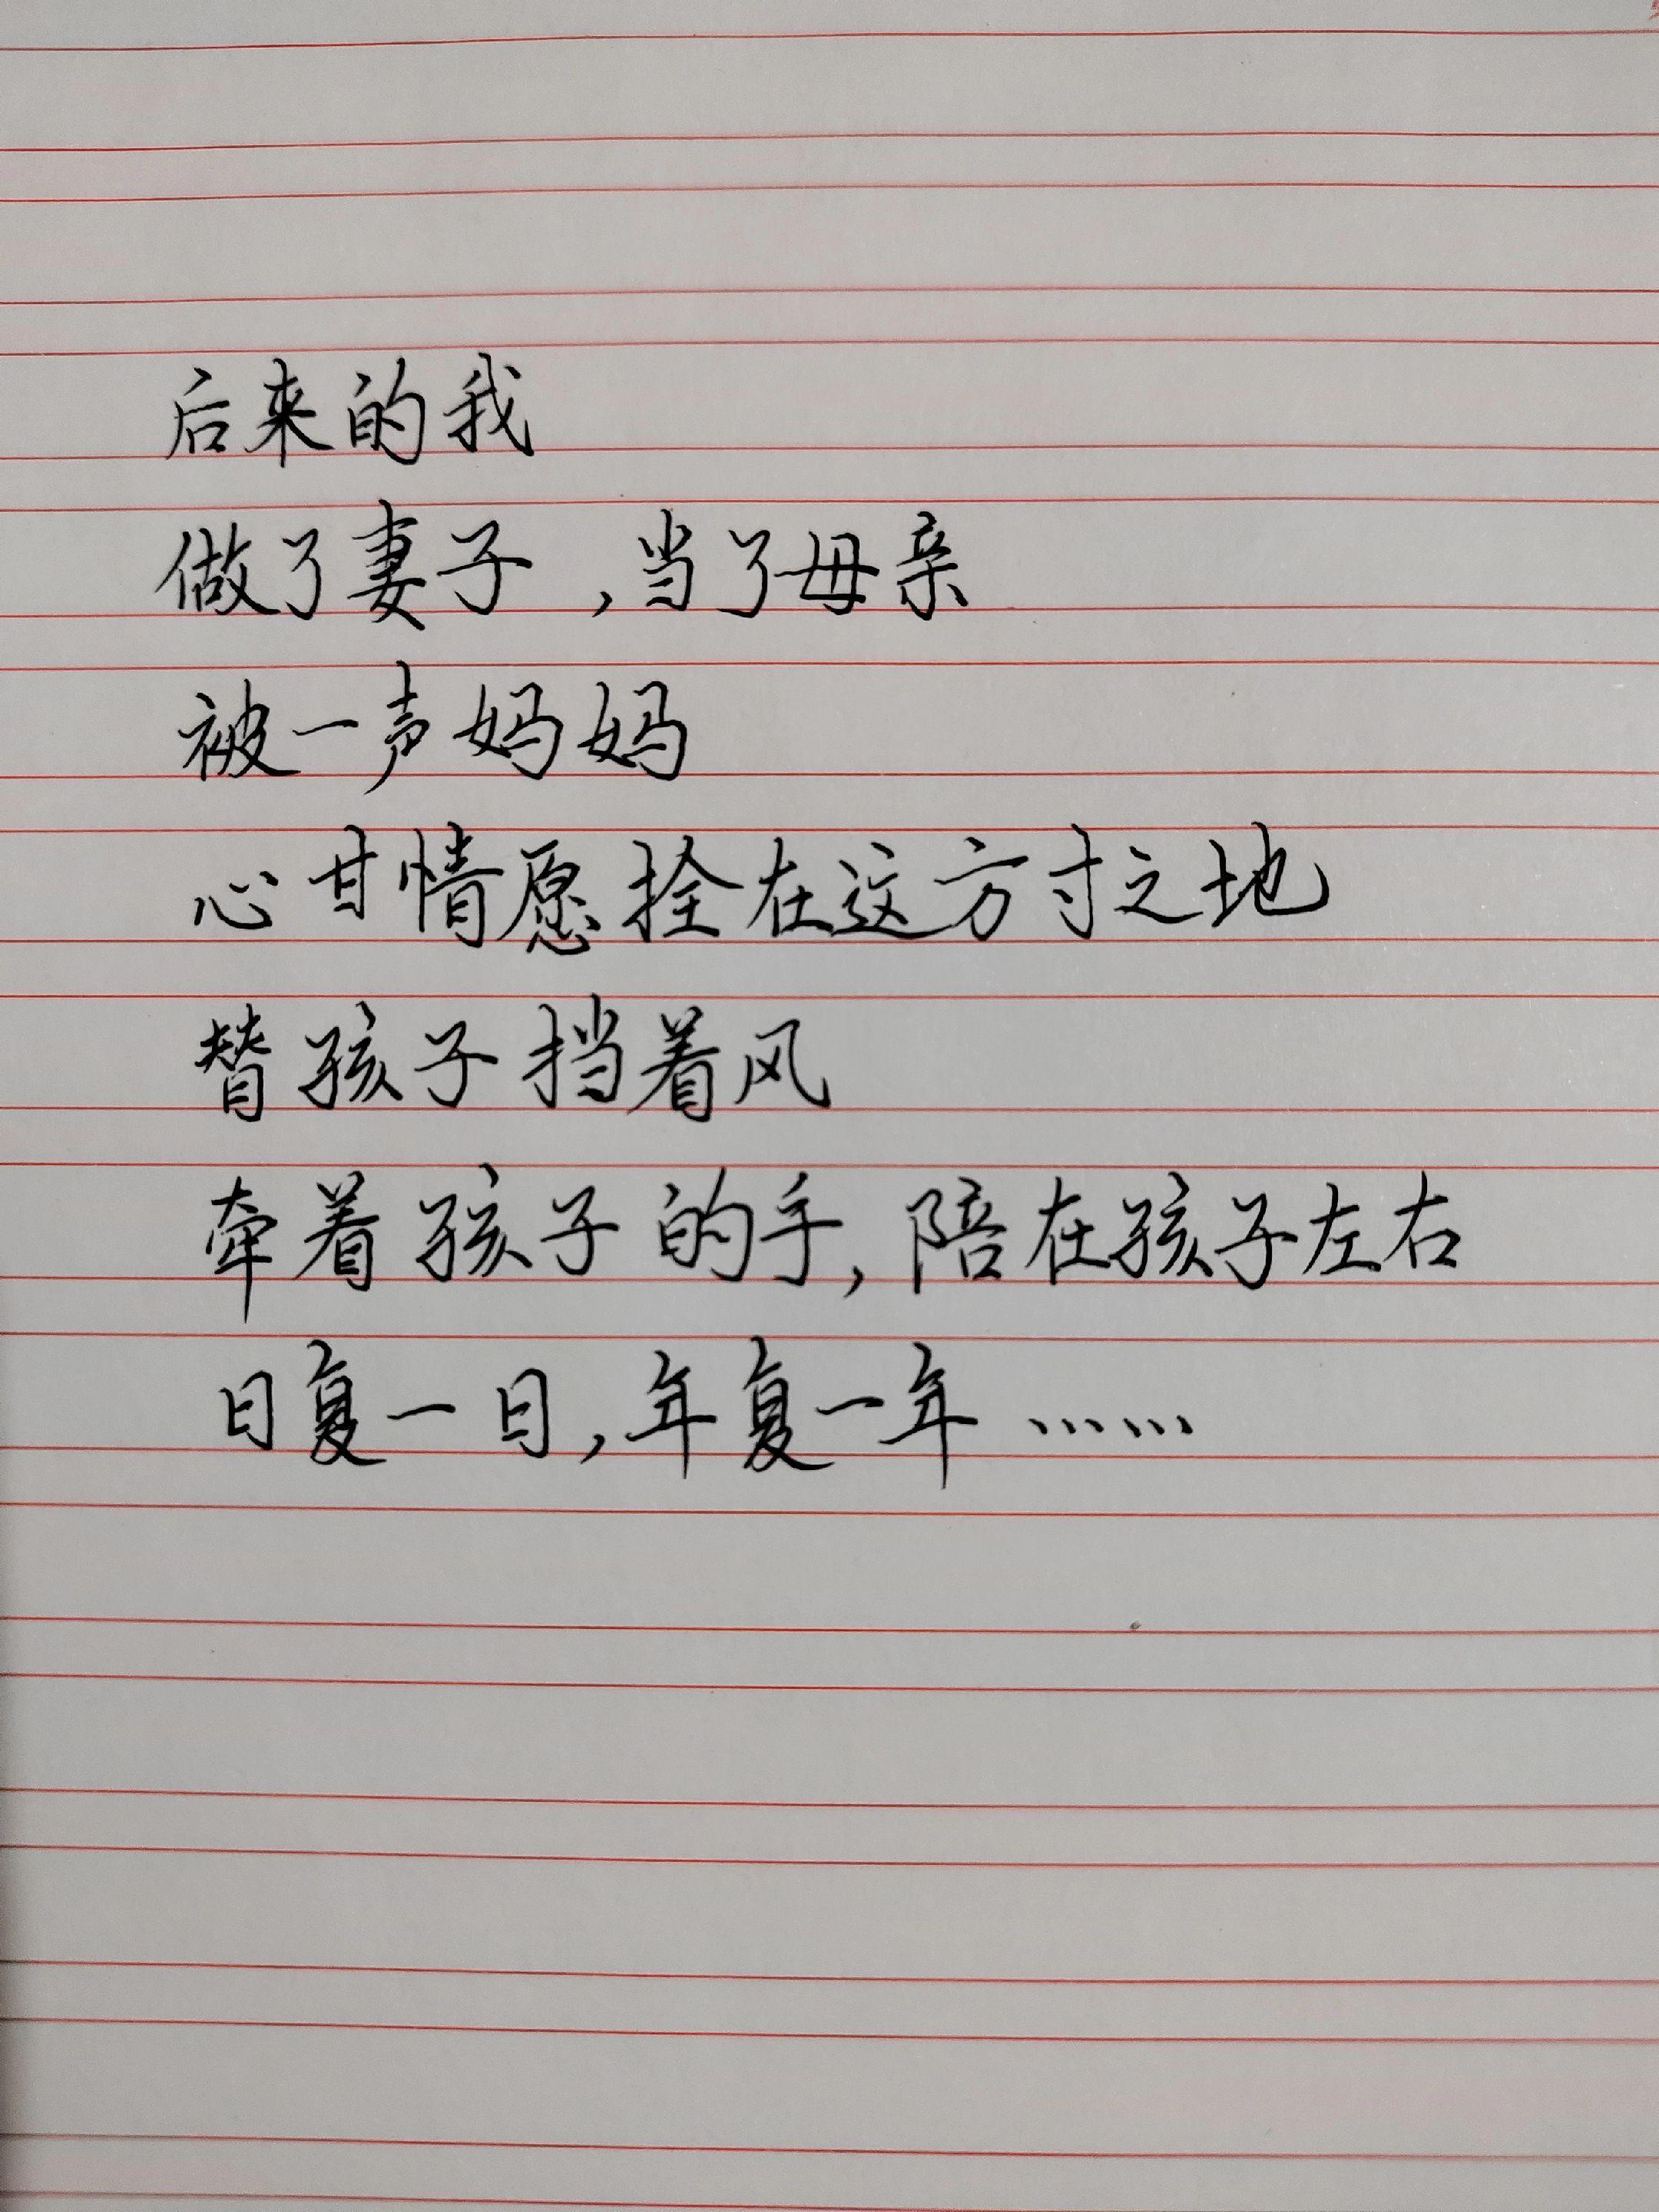 后来的我
做了妻子,当了母亲
被一声妈妈
心甘情愿拴在这方寸之地
替孩子挡着风
牵着孩子的手,陪在孩子左右
日复一日,年复一年……